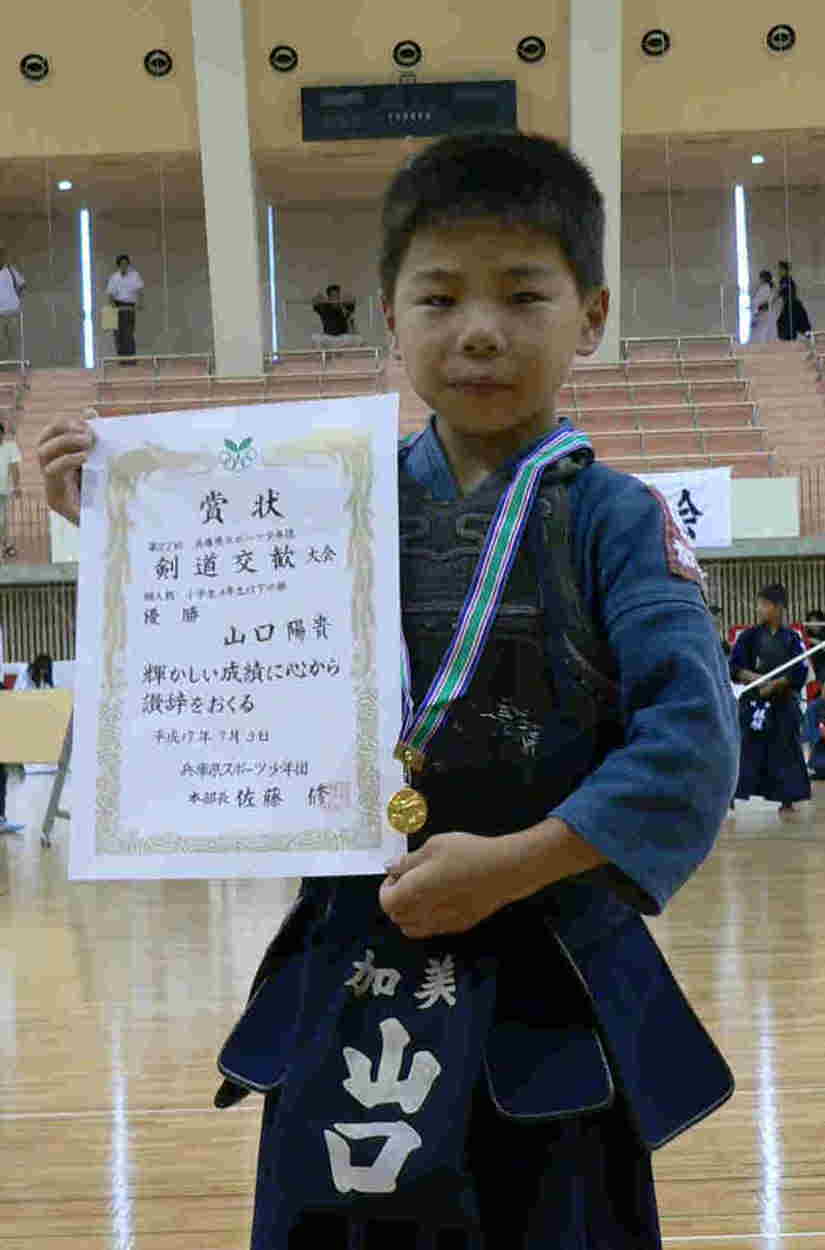 賞状
第27回 兵庫県スポーツ少年団
剣道交歓大会
個人戦 小学生4年生以下の部
優勝
山口陽貴
輝かしい成績に心から
讃辞をおくる
平成17年7月3日
兵庫県スポーツ少年団
本部長 佐藤 修
加美
山口
会